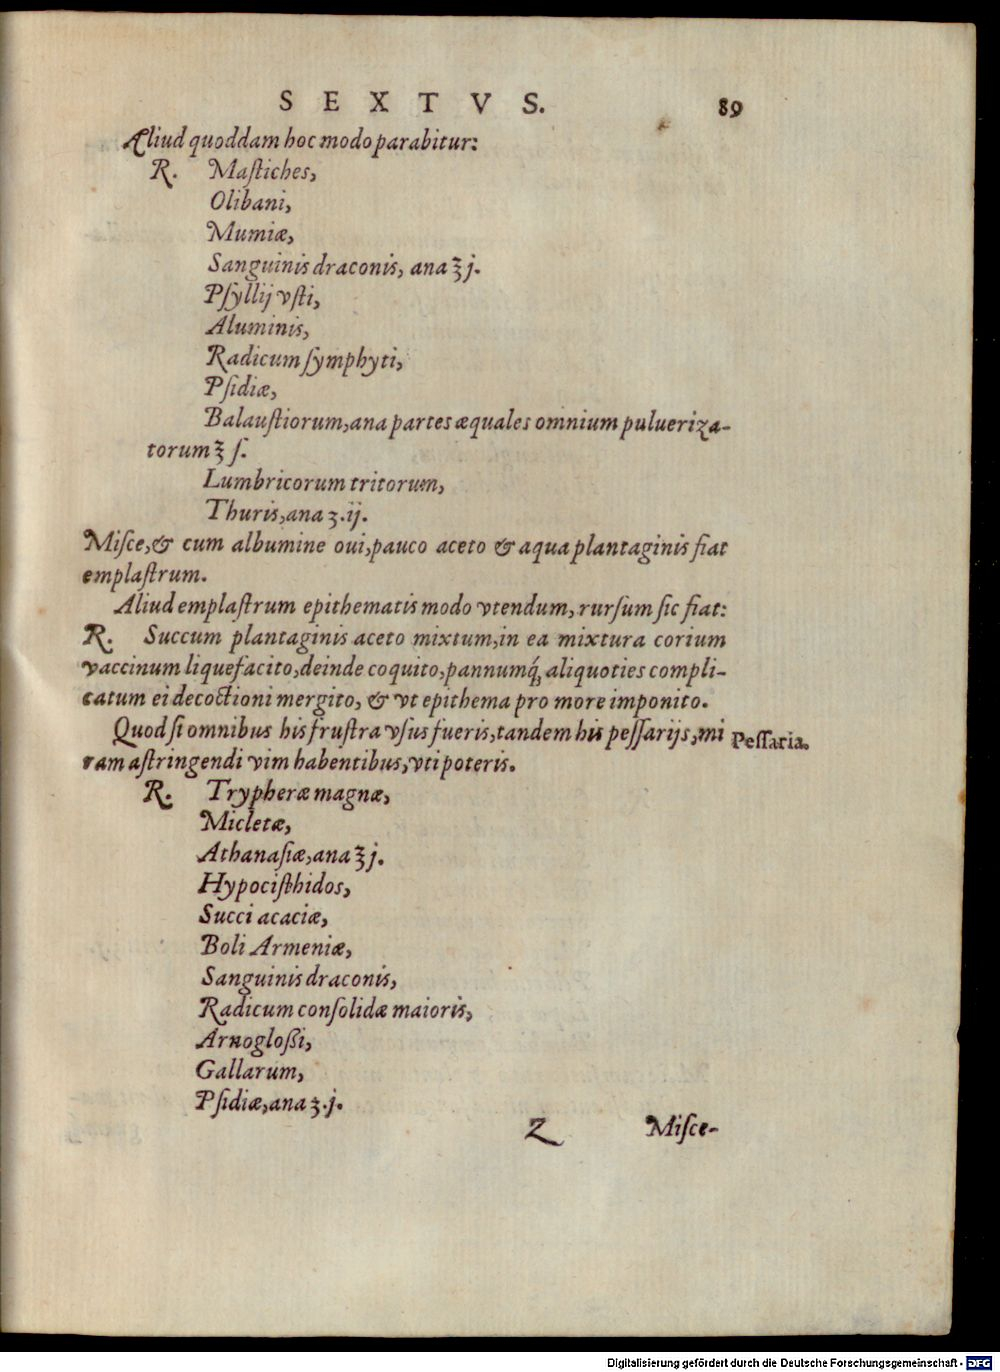 SEXTVS. 89
Aliud quoddam hoc modo parabitur:
R. Maſtiches,
Olibani,
Mumiæ,
Sanguinis draconis, ana ℥ j.
Pſyllij vſti,
Aluminis,
Radicum ſymphyti,
Pſidiæ,
Balauſtiorum, ana partes æquales omnium pulueriza-
torum ℥ ſ.
Lumbricorum tritorum,
Thuris, ana ʒ.ij.
Miſce, & cum albumine oui, pauco aceto & aqua plantaginis fiat
emplaſtrum.
Aliud emplaſtrum epithematis modo vtendum, rurſum ſic fiat:
R. Succum plantaginis aceto mixtum, in ea mixtura corium
vaccinum liquefacito, deinde coquito, pannumq́; aliquoties compli-
catum ei decoctioni mergito, & vt epithema pro more imponito.
Quod ſi omnibus his fruſtra vſus fueris, tandem his peſſarijs, mi
ram aſtringendi vim habentibus, vti poteris.
Peſſaria.
R. Trypheræ magnæ,
Micletæ,
Athanaſiæ, ana ℥ j.
Hypociſthidos,
Succi acaciæ,
Boli Armeniæ,
Sanguinis draconis,
Radicum conſolidæ maioris,
Arnogloßi,
Gallarum,
Pſidiæ, ana ʒ.j.
Z Miſce-
Digitalisierung gefördert durch die Deutsche Forschungsgemeinschaft - DFG